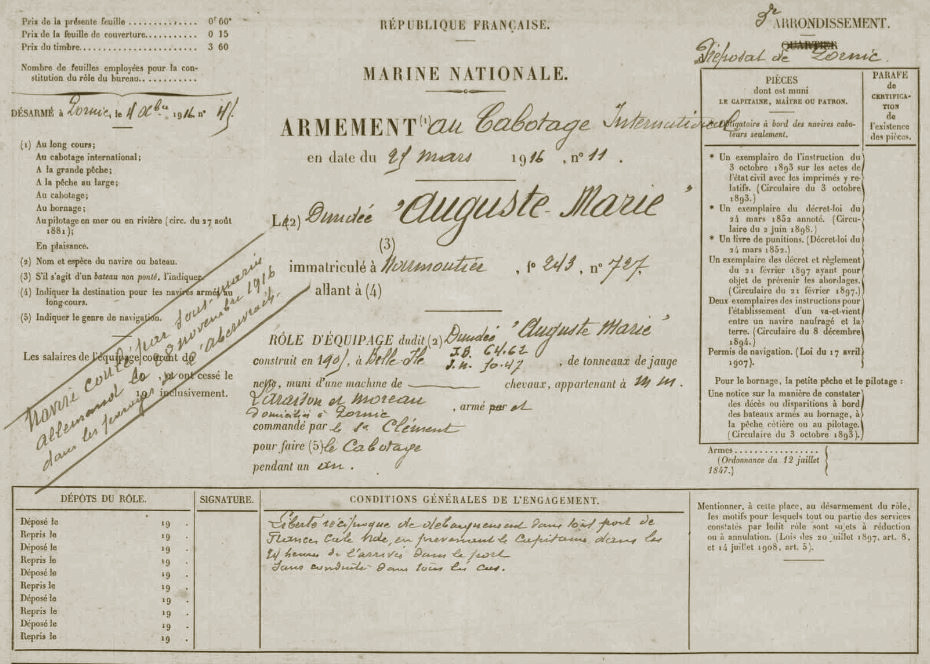 Prix de la présente feuille 0f 60c
Prix de la feuille de couverture.......... 0 15
Prix du timbre.................... 3 60
Nombre de feuilles employées pour la con-
stitution du rôle du bureau...........
DÉSARMÉ à Pornic, le 4 Xbre 1916 n° 45
(1) Au long cours;
Au cabotage international;
A la grande pêche;
A la pêche au large;
Au cabotage;
Au bornage;
Au pilotage en mer ou en rivière (circ. du 27 août
1881);
En plaisance.
(2) Nom et espèce du navire ou bateau.
(3) S'il s'agit d'un bateau non ponté, l'indiquer
(4) Indiquer la destination pour les navires armés au
long-cours.
(5) Indiquer le genre de navigation.
Les salaires de l'équipage courent du
19 et ont cessé le
19 inclusivement.
Navire coulé par sous-marin
allemand le novembre 1916
dans les d'aberwrach.
RÉPUBLIQUE FRANÇAISE.
MARINE NATIONALE.
ARMEMENT (1) au Cabotage International
en date du 25 mars 1916, n° 11.
L (2) Dundée "Auguste-Marie"
(3)
immatriculé à Noirmoutier, f° 243, n° 727.
allant à (4)
RÔLE D'ÉQUIPAGE dudit (2) Dundée "Auguste Marie"
construit en 1905, à Belle-Ile J.B. 64.62
J.N. 70.47, de tonneaux de jauge
nette, muni d'une machine de chevaux, appartenant à M M.
et Moreau, armé par et
Domiciliés à Pornic
commandé par le Sr Clément
pour faire (5) le Cabotage
pendant un an.
3e ARRONDISSEMENT.
QUARTIER
Préposat de Pornic
PIÈCES
dont est muni
LE CAPITAINE, MAÎTRE OU PATRON.
Obligatoire à bord des navires cabo-
teurs seulement.
PARAFE
de
CERTIFICA-
TION
de
l'existence
des pièces.
* Un exemplaire de l'instruction du
3 octobre 1893 sur les actes de
l'état civil avec les imprimés y re-
latifs. (Circulaire du 3 octobre
1893.)
* Un exemplaire du décret-loi du
24 mars 1852 annoté. (Circu-
laire du 2 juin 1898.)
* Un livre de punitions. (Décret-loi du
24 mars 1852.)
Un exemplaire des décret et règlement
du 21 février 1897 ayant pour
objet de prévenir les abordages.
(Circulaire du 21 février 1897.)
Deux exemplaires des instructions pour
l'établissement d'un va-et-vient
entre un navire naufragé et la
terre. (Circulaire du 8 décembre
1894.)
Permis de navigation. (Loi du 17 avril
1907).
Pour le bornage, la petite pêche et le pilotage :
Une notice sur la manière de constater
des décès ou disparitions à bord
des bateaux armés au bornage, à
la pêche côtière ou au pilotage.
(Circulaire du 3 octobre 1893).
Armes..................
(Ordonnance du 12 juillet
1847.)
DÉPÔTS DU RÔLE.
SIGNATURE.
CONDITIONS GÉNÉRALES DE L'ENGAGEMENT.
Déposé le 19 .
Repris le 19 .
Déposé le 19 .
Repris le 19 .
Déposé le 19 .
Repris le 19 .
Déposé le 19 .
Repris le 19 .
Déposé le 19 .
Repris le 19 .
Liberté réciproque de débarquement dans tout port de
France, en prévenant le Capitaine dans les
24 heures de l'arrivée dans le port
Sans conduite dans tous les cas.
Mentionner, à cette place, au désarmement du rôle,
les motifs pour lesquels tout ou partie des services
constatés par ledit rôle sont sujets à réduction
ou à annulation. (Lois des 20 juillet 1897, art. 8,
et 14 juillet 1908, art. 5).